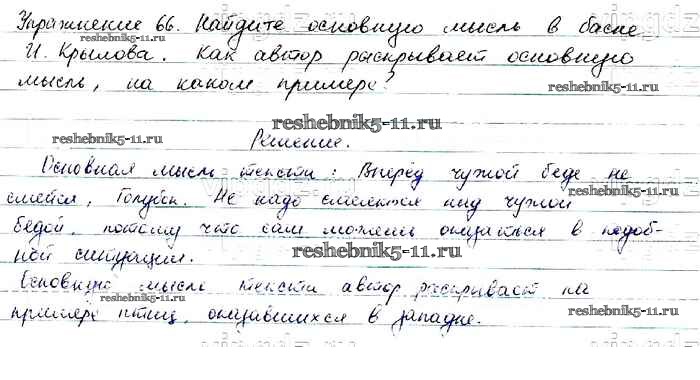 Упражнение 66. Найдите основную мысль в басне
И. Крылова. Как автор раскрывает основную
мысль, на каком примере?
reshebnik5-11.ru
reshebnik5-11.ru
reshebnik5-11.ru
reshebnik5-11.ru
Решение.
Основная мысль текста: Вперёд чужой беде не
смейся, Голубок. Не надо смеяться над чужой
бедой, потому что сам можешь оказаться в подоб-
ной ситуации.
reshebnik5-11.ru
Основную мысль текста автор раскрывает на
reshebnik5-11.ru
примере птиц, оказавшихся в западне.
reshebnik5-11.ru